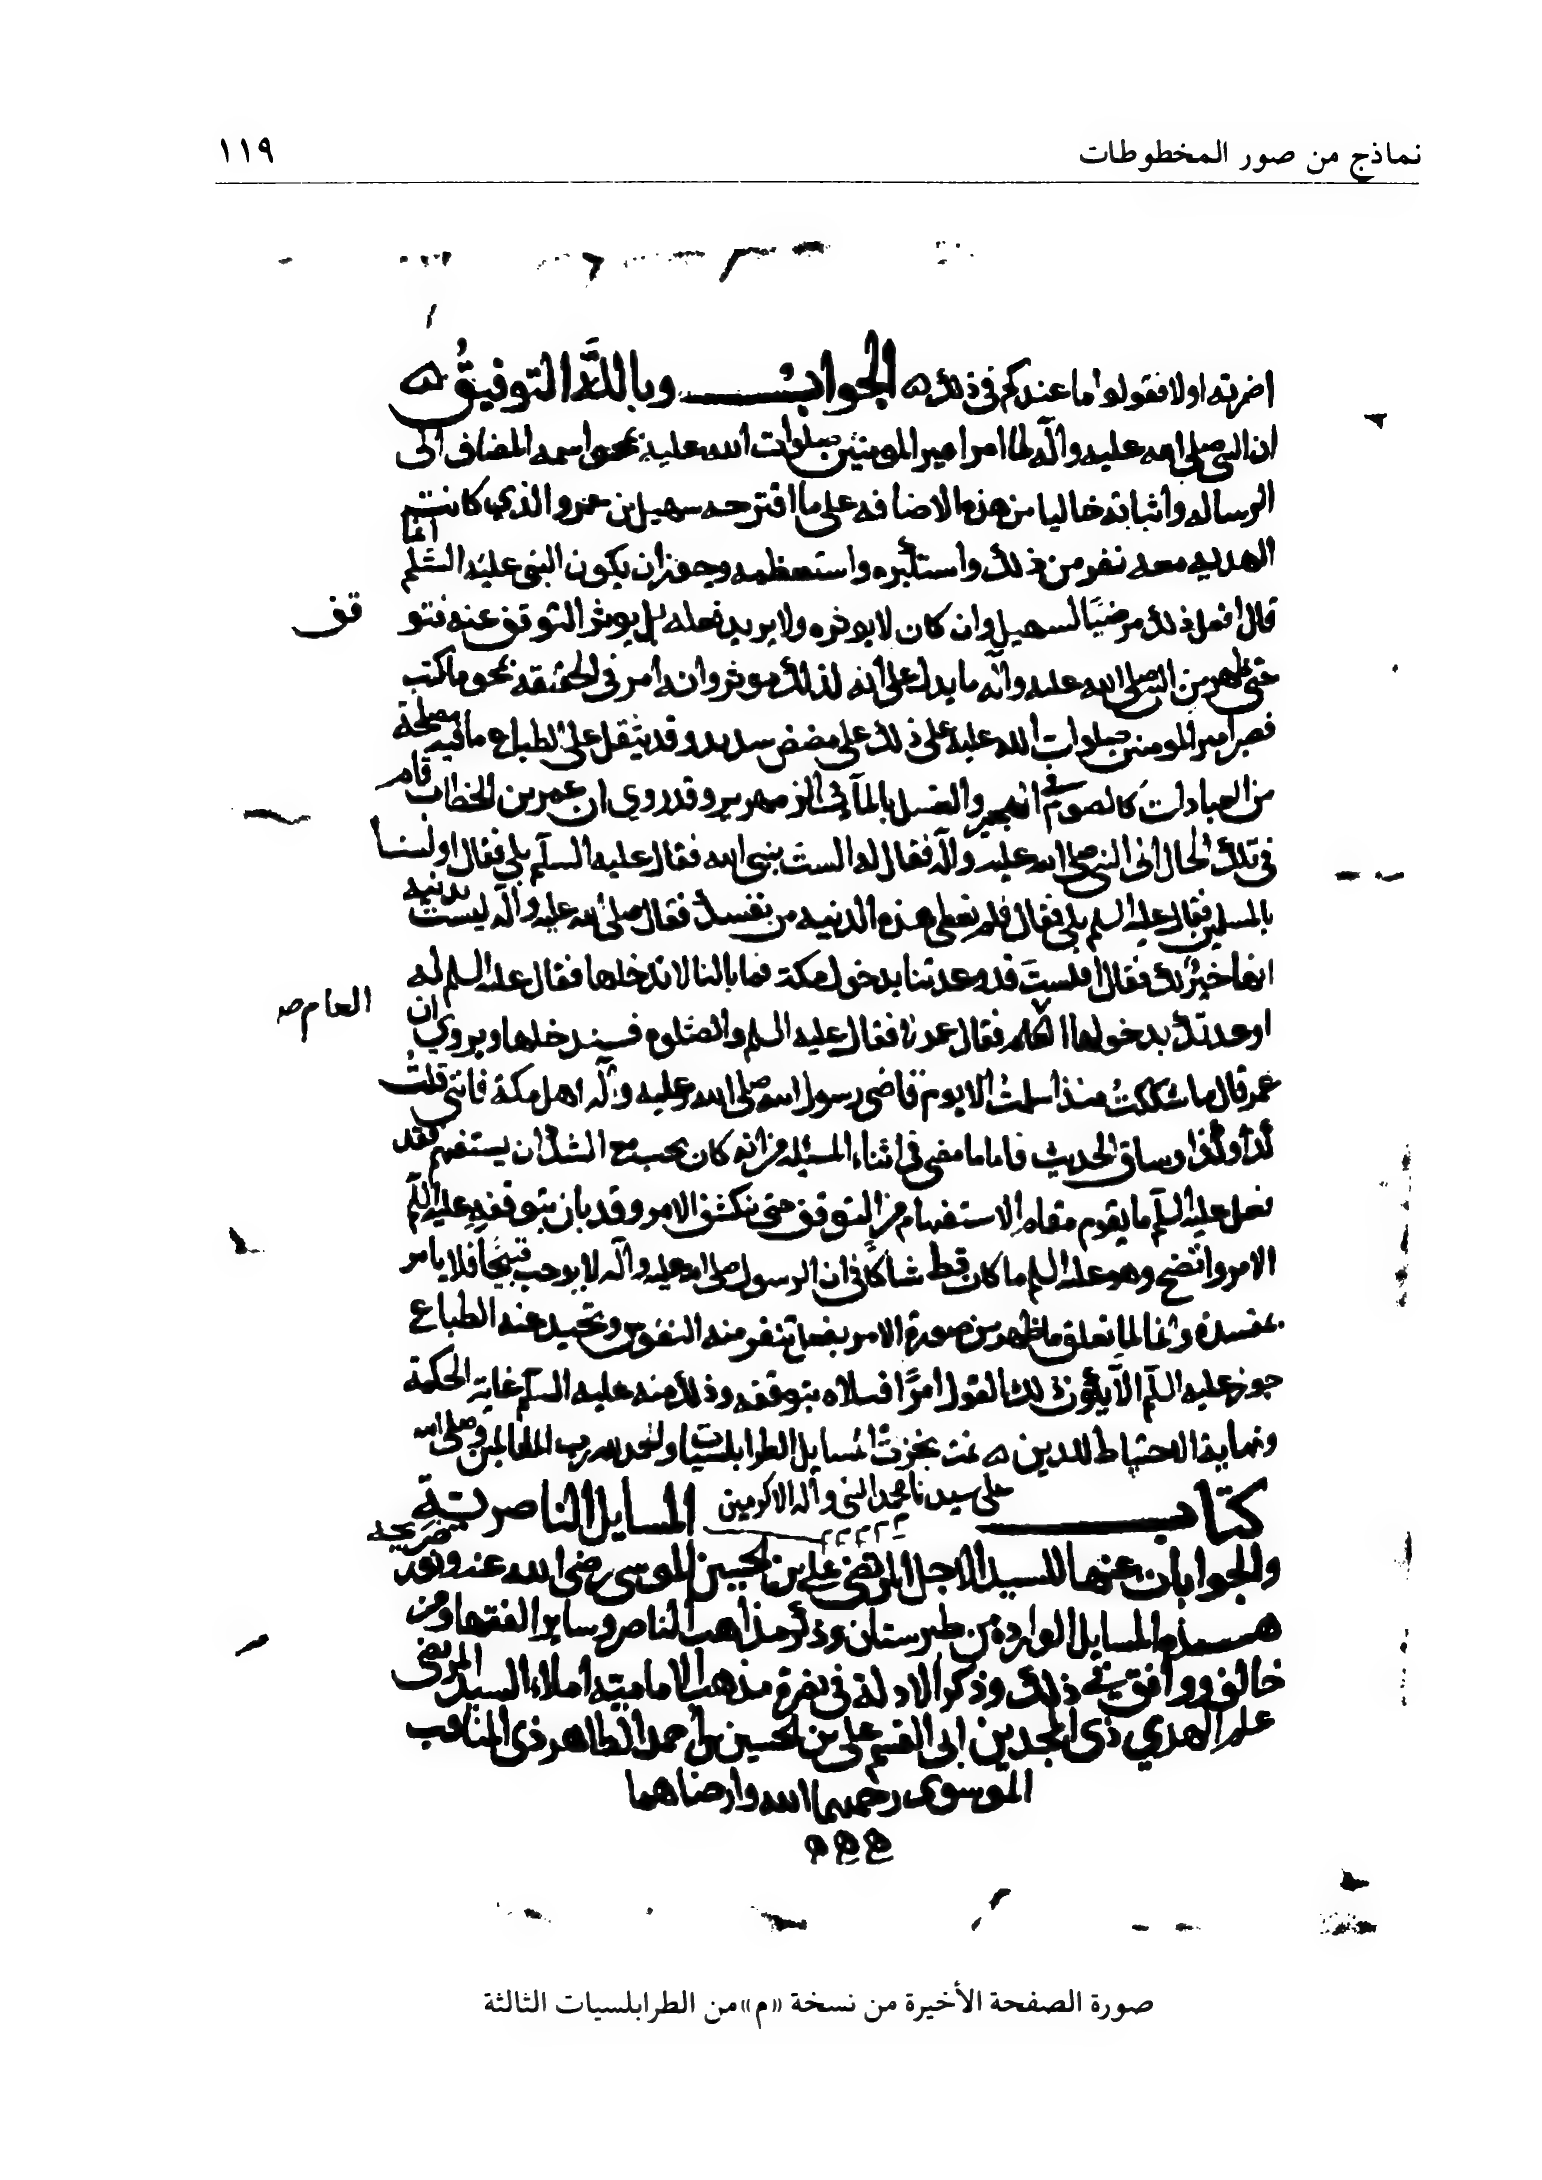 نماذج من صور المخطوطات ١١٩
اضربه اولا فقولوا ما عندكم في ذلك الجواب وبالله التوفيق
ان النبي صلى الله عليه وآله لما امر امير المومنين صلوات الله عليه بمحو اسمه المضاف الى
الرساله واثباته خاليا من هذه الاضافه على ما اقترحه سهيل بن عمرو الذي كانت
الهدنه معه نفر من ذلك واستكبره واستعظمه وجوز ان يكون النبي عليه السلم انما
قال افعل ذلك مرضيا لسهيل وان كان لا يوثره ولا يريد فعله بل يوثر التوقف عنه فتو
قف
حتى ظهر من النبي صلى الله عليه وآله ما يدل على انه لذلك موثر وانه امر في الحقيقه بمحو ما كتب
فصبر امير المومنين صلوات الله عليه على ذلك على مضض شديد وقد يثقل على الطباع ما فيه مصلحة
من العبادات كالصوم في الهجير والغسل بالمآ في الزمهرير وقد روي ان عمر بن الخطاب قام
في تلك الحال الى النبي صلى الله عليه وآله فقال له الست بنبي الله فقال عليه السلم بلى فقال اولسنا
بالمسلمين فقال عليه السلم بلى فقال فلم نعطي هذه الدنيه من نفسك فقال صلى الله عليه وآله ليست بدنيه
انها خير لك فقال افلست قد وعدتنا بدخول مكة فما بالنا لا ندخلها فقال عليه السلم له
العام صه
اوعدتك بدخولها فقال عمر لا فقال عليه السلم والصلوه فسندخلها ويروي ان
عمر قال ما شككت منذ اسلمت الا يوم قاضى رسول الله صلى الله عليه وآله اهل مكة فانني قلت
له كذا وكذا وساق الحديث فاما ما مضى في اثناء المسئله من انه كان يجب مع الشك ان يستفهم فقد
فعل عليه السلم ما يقوم مقام الاستفهام من التوقف حتى ينكشف الامر وقد بان بتوقفه عليه السلم
الامر واتضح وهو عليه السلم ما كان قط شاكا في ان الرسول صلى الله عليه وآله لا يوجب قبيحا فلا يامر
بمفسدة وانما لما تعلق ما ظهر من صورة الامر بفعل تنفر منه النفوس وتحيد عنه الطباع
جوز عليه السلم الا يكون ذلك القول امرا فتلاه بتوقفه وذلك منه عليه السلم غاية الحكمة
ونهاية الاحتياط للدين تمت نجزت المسايل الطرابلسيات والحمد لله رب العالمين وصلى الله
على سيدنا محمد النبي وآله الاكرمين
كتاب المسايل الناصرية
والجوابات عنها للسيد الاجل المرتضى علي بن الحسين الموسوي رضي الله عنه ونور ضريحه
هذه المسايل الوارده من طبرستان وذكر مذاهب الناصر وساير الفقها ومن
خالف ووافق في ذلك وذكر الادلة في نصرة مذهب الاماميه املاء السيد المرتضى
علم الهدي ذي المجدين ابي القسم علي بن الحسين بن احمد الطاهر ذي المناقب
الموسوي رحمهما الله وارضاهما
صورة الصفحة الأخيرة من نسخة «م» من الطرابلسيات الثالثة